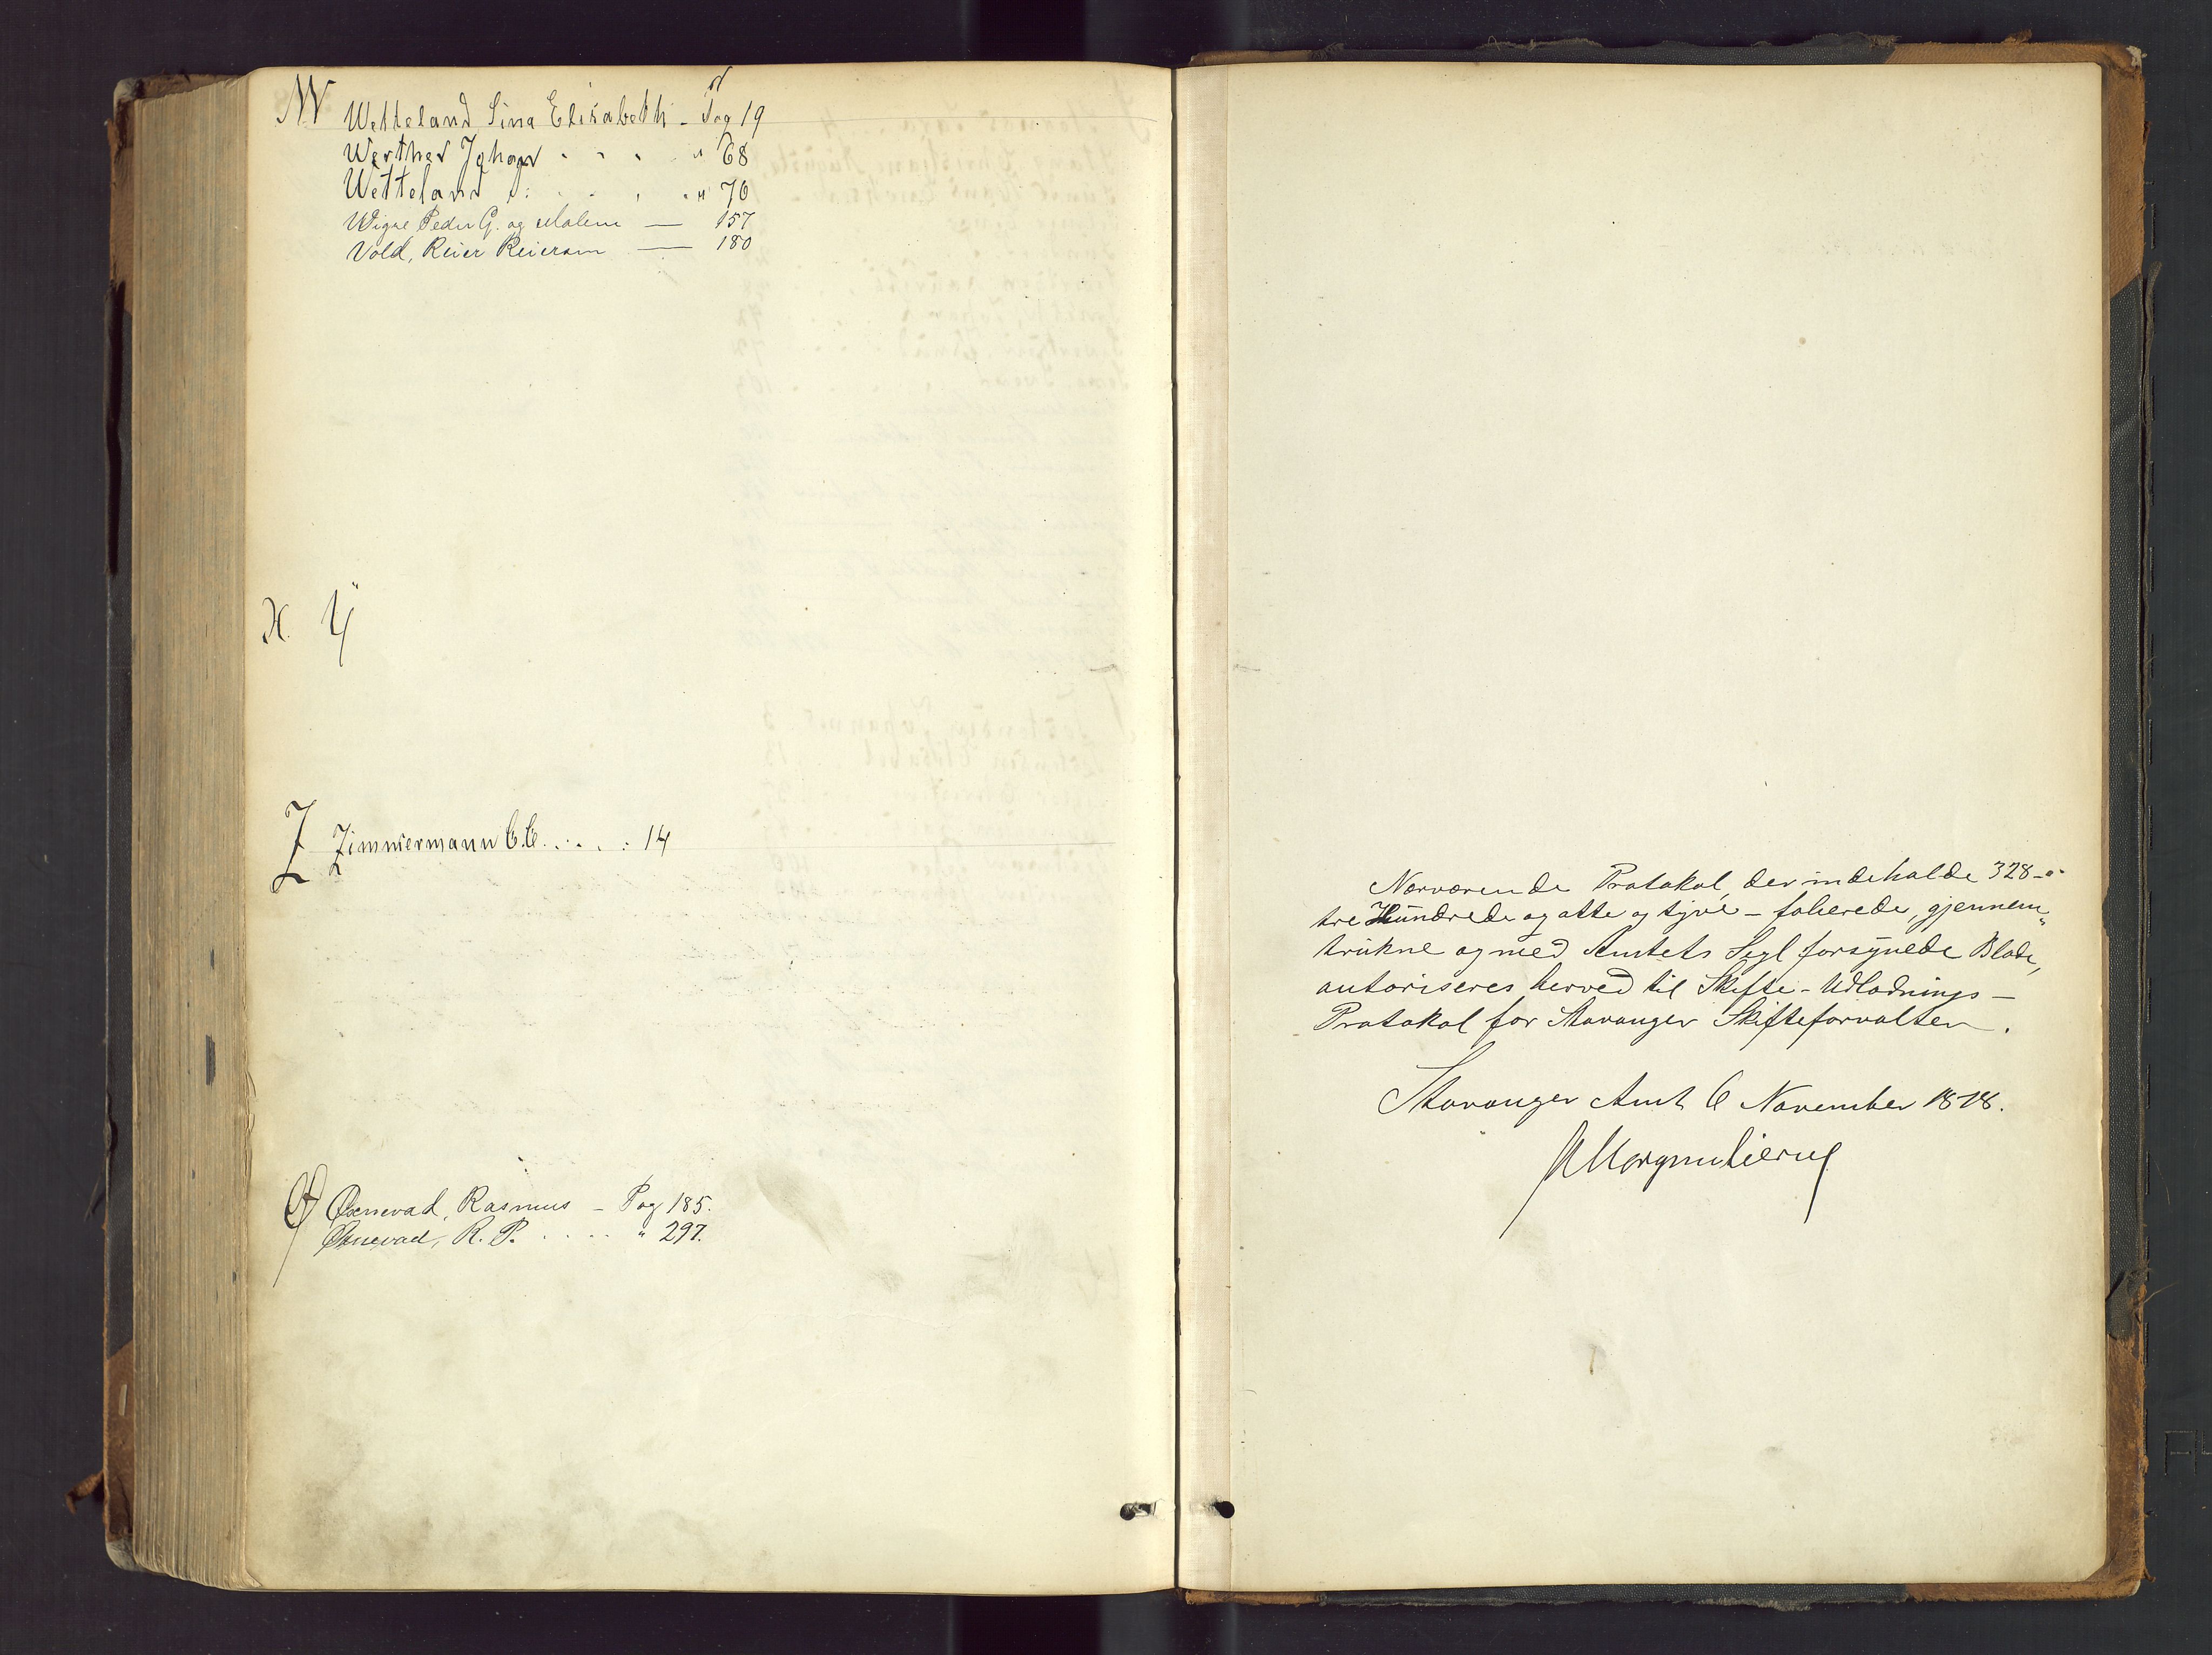 W Wetteland Sina Elisabeth - Pag 19
Werther Johan . . . " 68
Wetteland . . . " 70
Wigre Peder G. og Malene — 157
Vold, Reier Reiersen — 180
X. Y
Z Zimmermann C.C. . . . . : 14
Ø Øxnevad, Rasmus - Pag 185.
Øxnevad, R. P. . . . . " 297.
Nærværende Protokol, der indeholde 328 -
tre Hundrede og atte og tyve - folierede, gjennem„
trukne og med Amtets Segl forsynede Blade,
autoriseres herved til Skifte-Udlodnings-
Protokol for Stavanger Skifteforvalter.
Stavanger Amt 6 November 1878.